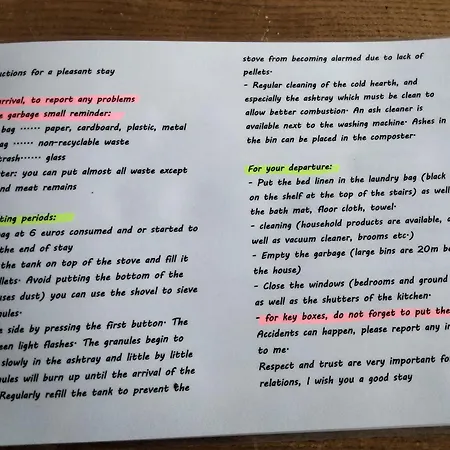 uctions for a pleasant stay
arrival, to report any problems
e garbage small reminder:
bag ······ paper, cardboard, plastic, metal
ag ······ non-recyclable waste
trash······ glass
ter: you can put almost all waste except
nd meat remains
ting periods:
ag at 6 euros consumed and or started to
the end of stay
the tank on top of the stove and fill it
llets. Avoid putting the bottom of the
uses dust) you can use the shovel to sieve
nules.
e side by pressing the first button. The
een light flashes. The granules begin to
slowly in the ashtray and little by little
nules will burn up until the arrival of the
Regularly refill the tank to prevent the
stove from becoming alarmed due to lack of
pellets.
- Regular cleaning of the cold hearth, and
especially the ashtray which must be clean to
allow better combustion. An ash cleaner is
available next to the washing machine. Ashes in
the bin can be placed in the composter.
For your departure:
- Put the bed linen in the laundry bag (black
on the shelf at the top of the stairs) as well
the bath mat, floor cloth, towel.
- cleaning (household products are available, a
well as vacuum cleaner, brooms etc.)
- Empty the garbage (large bins are 20m b
the house)
- Close the windows (bedrooms and ground
as well as the shutters of the kitchen.
- for key boxes, do not forget to put the
Accidents can happen, please report any in
to me.
Respect and trust are very important fo
relations, I wish you a good stay